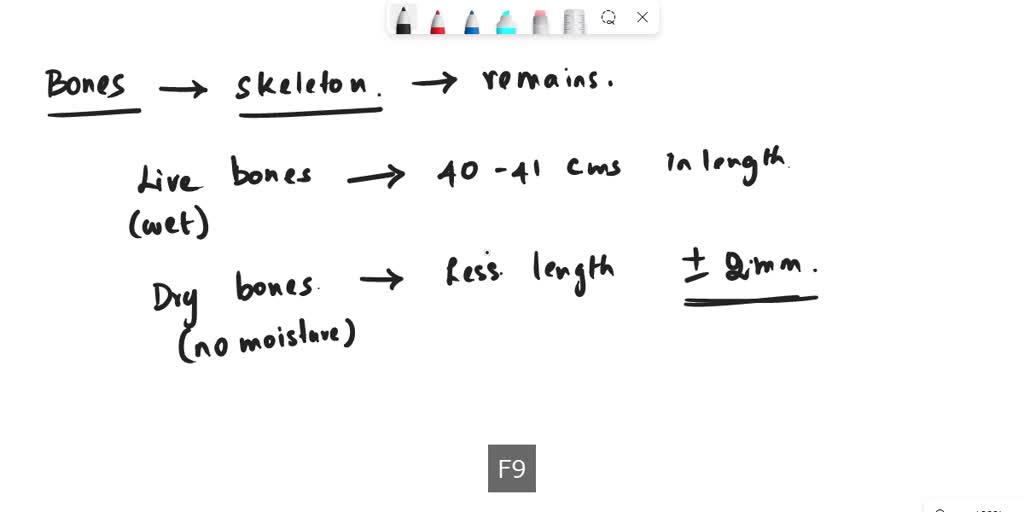 Bones → skeleton. → remains.
Live bones → 40 - 41 cms in length.
(wet)
Dry bones. → Less. length ± 2mm.
(no moisture)
F9